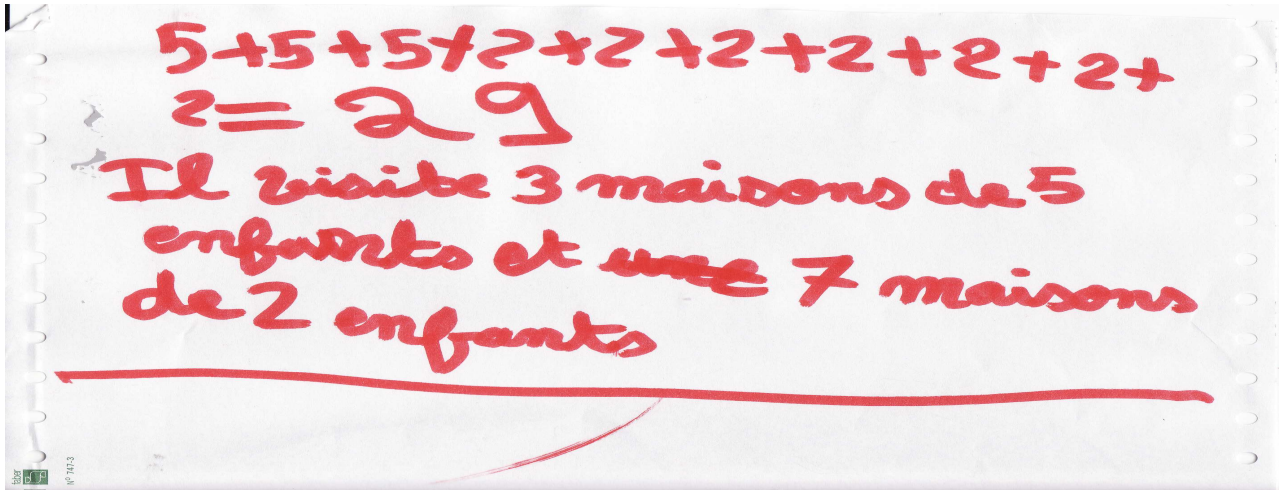 5+5+5+2+2+2+2+2+2+
2= 29
Il visite 3 maisons de 5
enfants et une 7 maisons
de 2 enfants
Nº 747-3